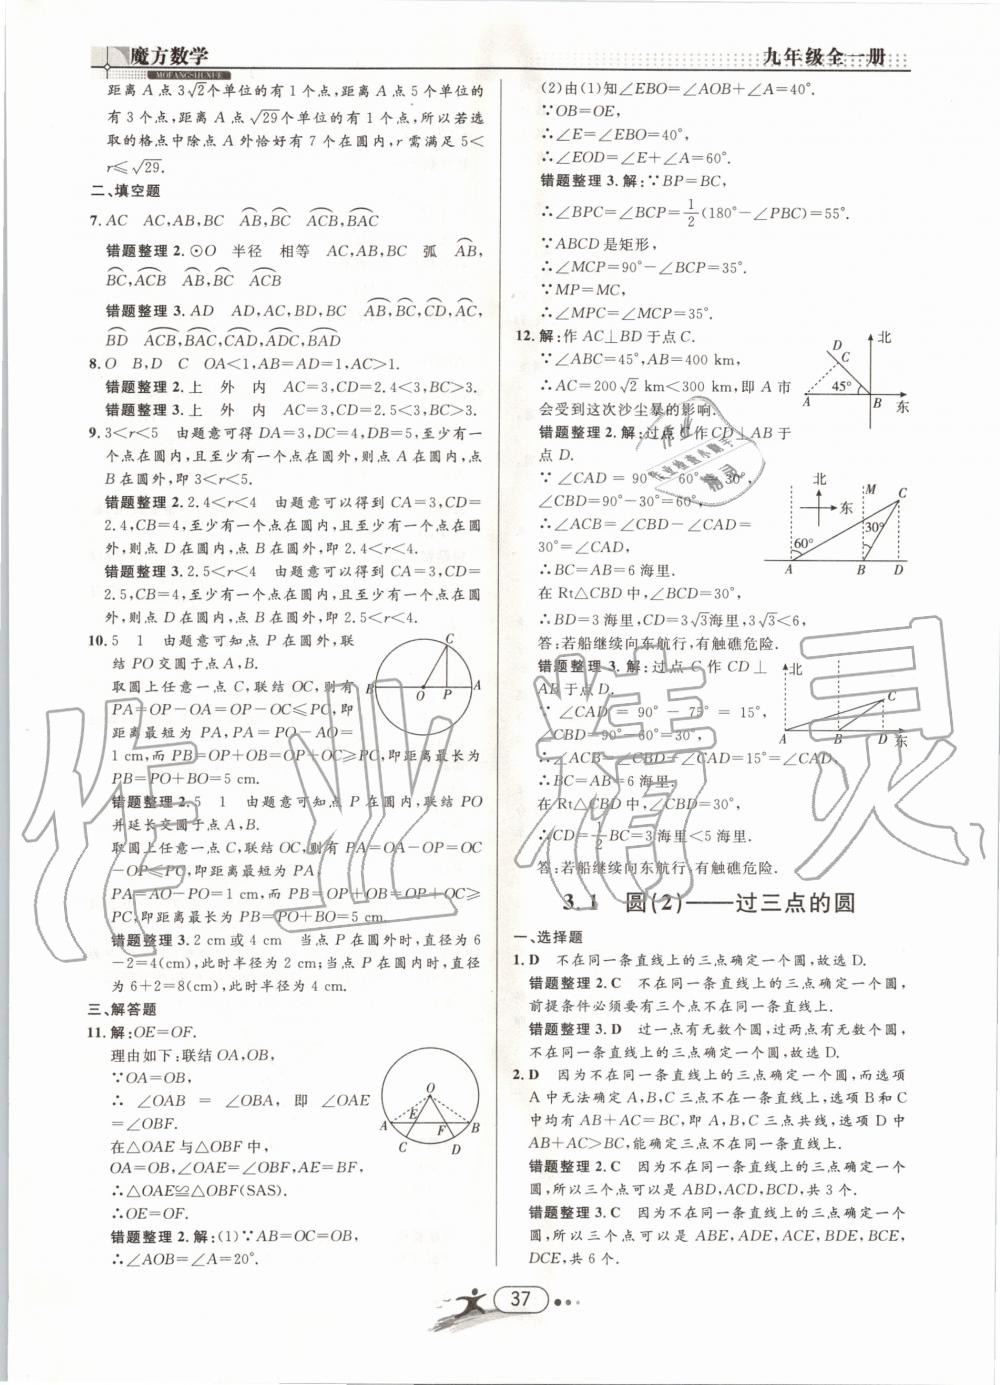 魔方数学
MOFANGSHUXUE
九年级全一册
距离 A 点 3√2个单位的有 1 个点,距离 A 点 5 个单位的
有 3 个点,距离 A 点 √29个单位的有 1 个点,所以若选
取的格点中除点 A 外恰好有 7 个在圆内,r 需满足 5<
r≤√29.
二、填空题
7. AC　AC,AB,BC　A͡B,B͡C　A͡CB,B͡AC
错题整理 2. ⊙O　半径　相等　AC,AB,BC　弧　A͡B,
B͡C,A͡CB　A͡B,B͡C　A͡CB
错题整理 3. AD　AD,AC,BD,BC　A͡B,B͡C,C͡D,A͡C,
B͡D　A͡CB,B͡AC,C͡AD,A͡DC,B͡AD
8. O　B,D　C　OA<1,AB=AD=1,AC>1.
错题整理 2. 上　外　内　AC=3,CD=2.4<3,BC>3.
错题整理 3. 上　外　内　AC=3,CD=2.5<3,BC>3.
9. 3<r<5　由题意可得 DA=3,DC=4,DB=5,至少有
一个点在圆内,则点 A 在圆内,至少有一个点在圆外,则
点 B 在圆外,即 3<r<5.
错题整理 2. 2.4<r<4　由题意可以得到 CA=3,CD=
2.4,CB=4,至少有一个点在圆内,且至少有一个点在圆
外,则点 D 在圆内,点 B 在圆外,即 2.4<r<4.
错题整理 3. 2.5<r<4　由题意可以得到 CA=3,CD=
2.5,CB=4,至少有一个点在圆内,且至少有一个点在圆
外,则点 D 在圆内,点 B 在圆外,即 2.5<r<4.
10. 5　1　由题意可知点 P 在圆外,联
结 PO 交圆于点 A,B.
取圆上任意一点 C,联结 OC,则有
PA=OP-OA=OP-OC≤PC,即
距离最短为 PA,PA=PO-AO=
1 cm,而 PB=OP+OB=OP+OC≥PC,即距离最长为
PB=PO+BO=5 cm.
C
B
O
P
A
错题整理 2. 5　1　由题意可知点 P 在圆内,联结 PO
并延长交圆于点 A,B.
取圆上任意一点 C,联结 OC,则有 PA=OA-OP=OC
-OP≤PC,即距离最短为 PA,
PA=AO-PO=1 cm,而 PB=OP+OB=OP+OC≥
PC,即距离最长为 PB=PO+BO=5 cm.
错题整理 3. 2 cm 或 4 cm　当点 P 在圆外时,直径为 6
-2=4(cm),此时半径为 2 cm;当点 P 在圆内时,直径为
6+2=8(cm),此时半径为 4 cm.
三、解答题
11. 解:OE=OF.
理由如下:联结 OA,OB,
∵OA=OB,
∴ ∠OAB = ∠OBA, 即 ∠OAE
=∠OBF.
在△OAE 与△OBF 中,
OA=OB,∠OAE=∠OBF,AE=BF,
∴△OAE≌△OBF(SAS).
∴OE=OF.
O
A
E
F
B
C
D
错题整理 2. 解:(1)∵AB=OC=OB,
∴∠AOB=∠A=20°.
(2)由(1)知∠EBO=∠AOB+∠A=40°.
∵OB=OE,
∴∠E=∠EBO=40°.
∴∠EOD=∠E+∠A=60°.
错题整理 3. 解:∵BP=BC,
∴∠BPC=∠BCP=1/2(180°-∠PBC)=55°.
∵ABCD 是矩形,
∴∠MCP=90°-∠BCP=35°.
∵MP=MC,
∴∠MPC=∠MCP=35°.
12. 解:作 AC⊥BD 于点 C.
∵∠ABC=45°,AB=400 km,
∴AC=200√2 km<300 km,即 A 市
会受到这次沙尘暴的影响.
北
D
C
45°
A
B
东
错题整理 2. 解:过点 C 作 CD⊥AB 于
点 D.
∵∠CAD = 90°-60°=30°,
∠CBD=90°-30°=60°,
∴∠ACB=∠CBD-∠CAD=
30°=∠CAD.
∴BC=AB=6 海里.
在 Rt△CBD 中,∠BCD=30°,
∴BD=3 海里,CD=3√3海里,3√3<6,
答:若船继续向东航行,有触礁危险.
北
东
M
C
60°
30°
A
B
D
错题整理 3. 解:过点 C 作 CD⊥
AB 于点 D.
∵ ∠CAD = 90° - 75° = 15°,
∠CBD=90°-60°=30°,
∴∠ACB=∠CBD-∠CAD=15°=∠CAD.
∴BC=AB=6 海里.
在 Rt△CBD 中,∠CBD=30°,
∴CD=1/2BC=3 海里<5 海里.
答:若船继续向东航行,有触礁危险.
北
C
A
B
D
东
3.1　圆(2)——过三点的圆
一、选择题
1. D　不在同一条直线上的三点确定一个圆,故选 D.
错题整理 2. C　不在同一条直线上的三点确定一个圆,
前提条件必须要有三个点不在同一条直线上.
错题整理 3. D　过一点有无数个圆,过两点有无数个
圆,不在同一条直线上的三点确定一个圆,故选 D.
2. D　因为不在同一条直线上的三点确定一个圆,而选项
A 中无法确定 A,B,C 三点不在一条直线上,选项 B 和 C
中均有 AB+AC=BC,即 A,B,C 三点共线,选项 D 中
AB+AC>BC,能确定三点不在同一条直线上.
错题整理 2. C　因为不在同一条直线上的三点确定一个
圆,所以三个点可以是 ABD,ACD,BCD,共 3 个.
错题整理 3. C　因为不在同一条直线上的三点确定一个
圆,所以三个点可以是 ABE,ADE,ACE,BDE,BCE,
DCE,共 6 个.
37
作业精灵
作业检查小助手
精灵